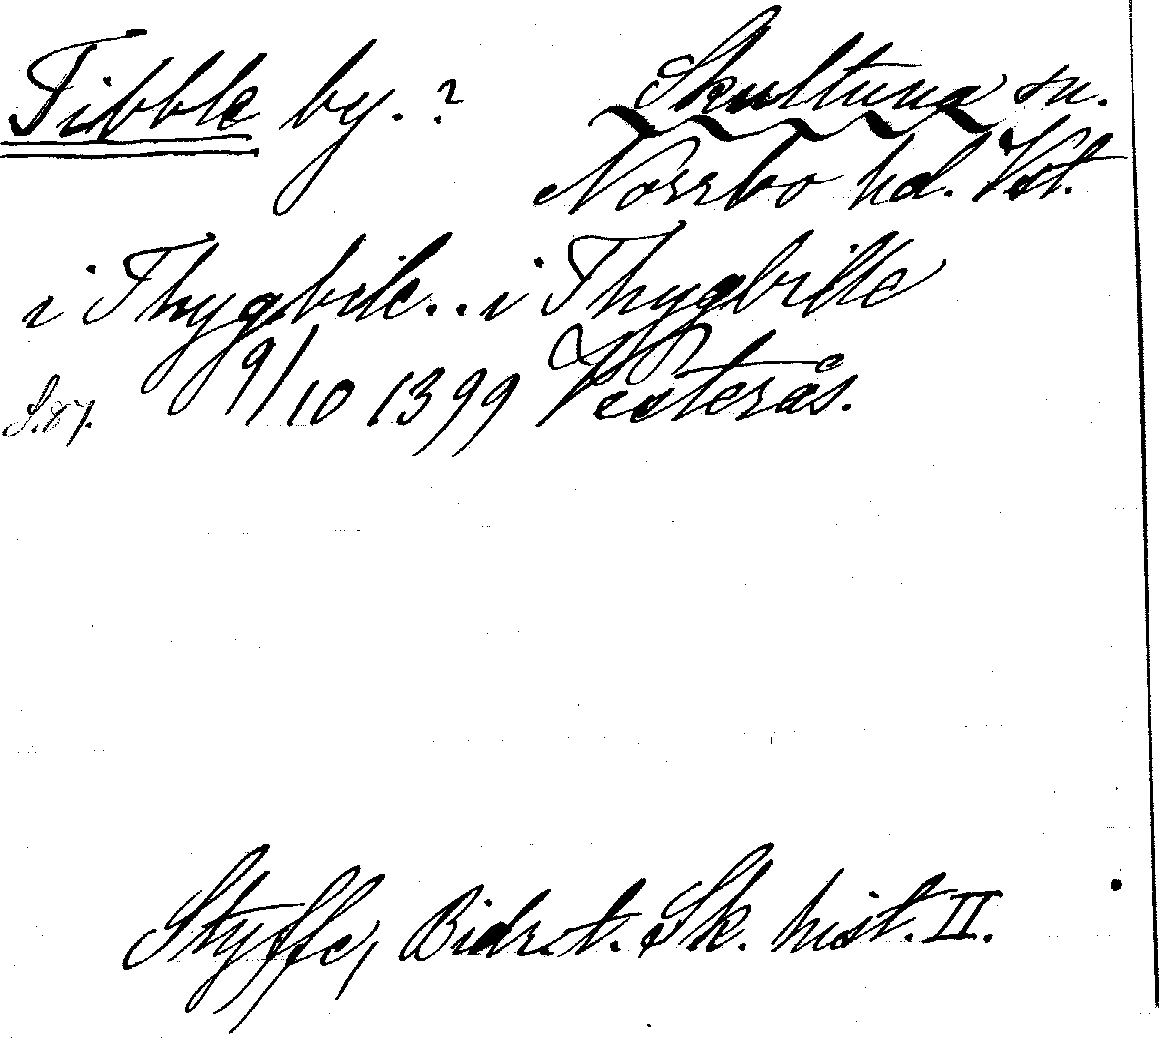 Tibble by.? Skultuna sn.
Norrbo hd. Vst.
i Thygbile.. i Thygbille
S.87. 9/10 1399 Vesterås.
Styffe, Bidr. t. Sk. hist. II.